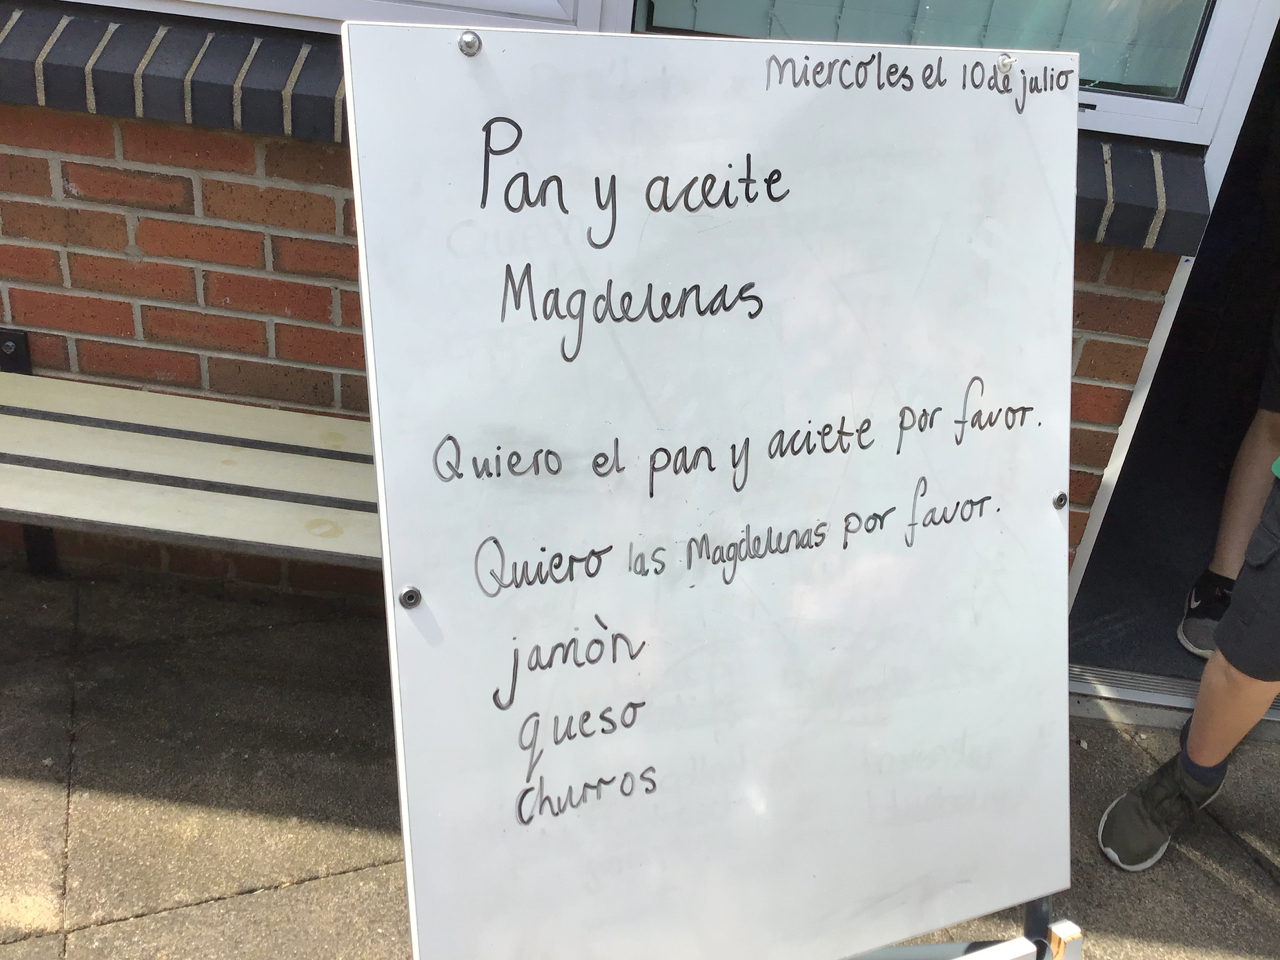 Miercóles el 10 de julio
Pan y aceite
Magdelenas
Quiero el pan y aciete por favor.
Quiero las Magdelenas por favor.
jamòn
queso
churros